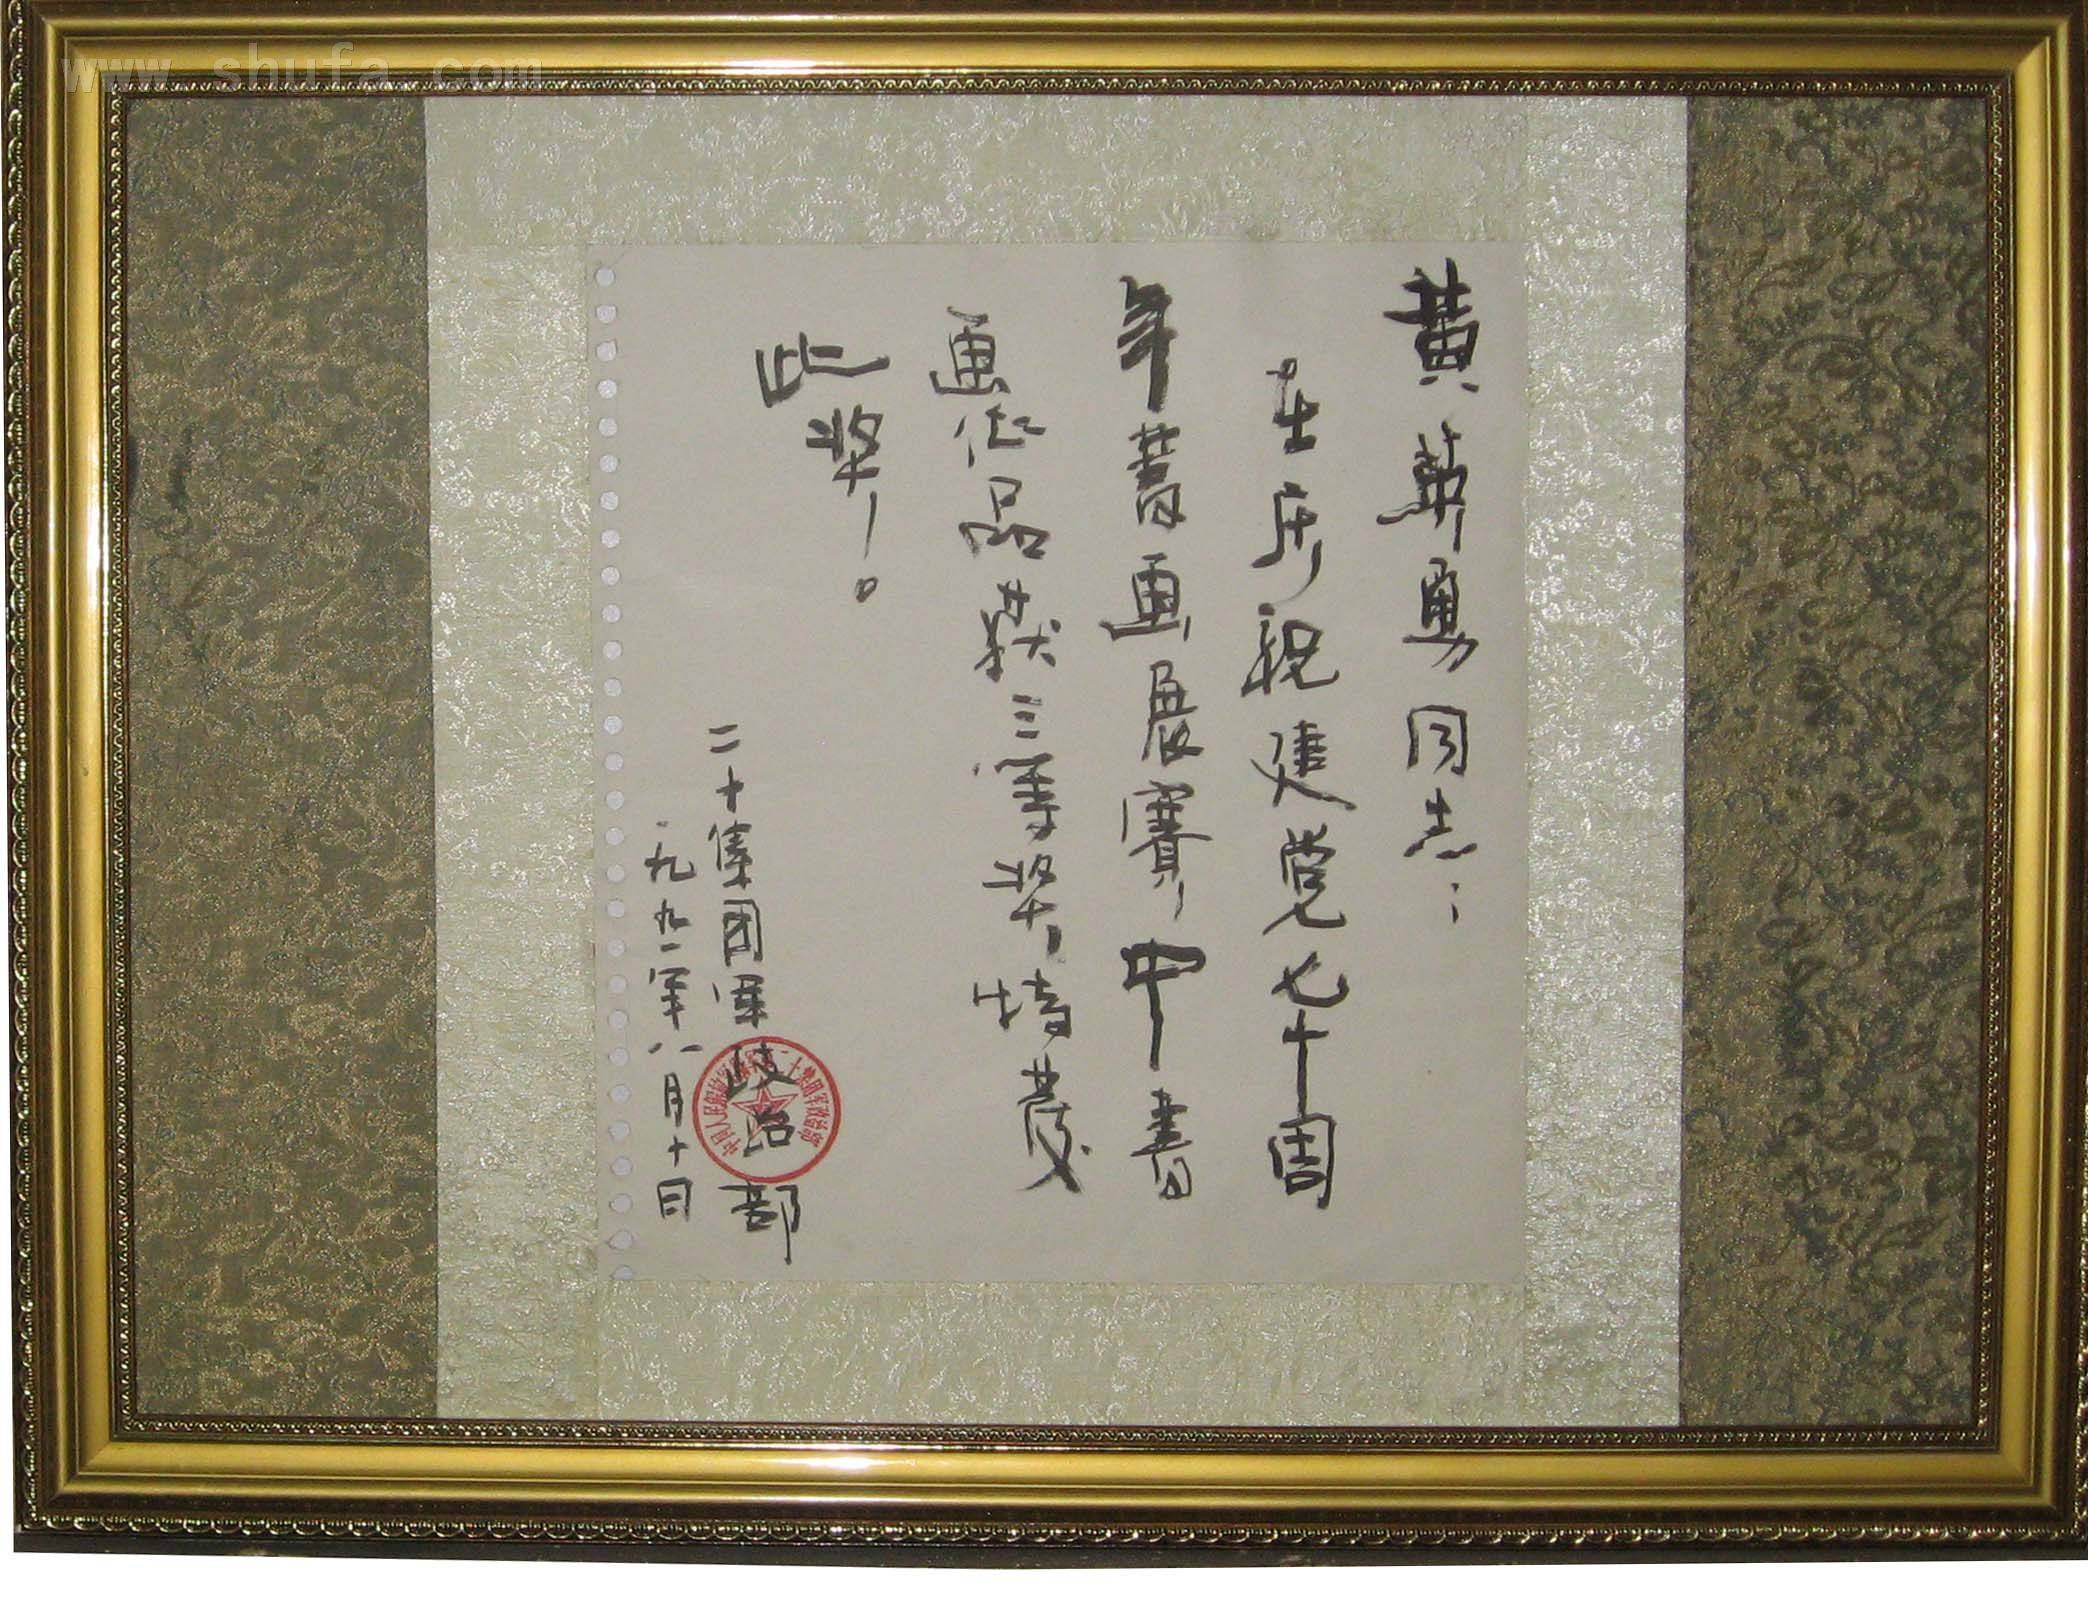 www.shufa.com
黄華勇同志:
在庆祝建党七十周
年书画展赛中书
画作品获三等奖特发
此奖。
二十集团军政治部
一九九一年八月十日
中国人民解放军第二十集团军政治部